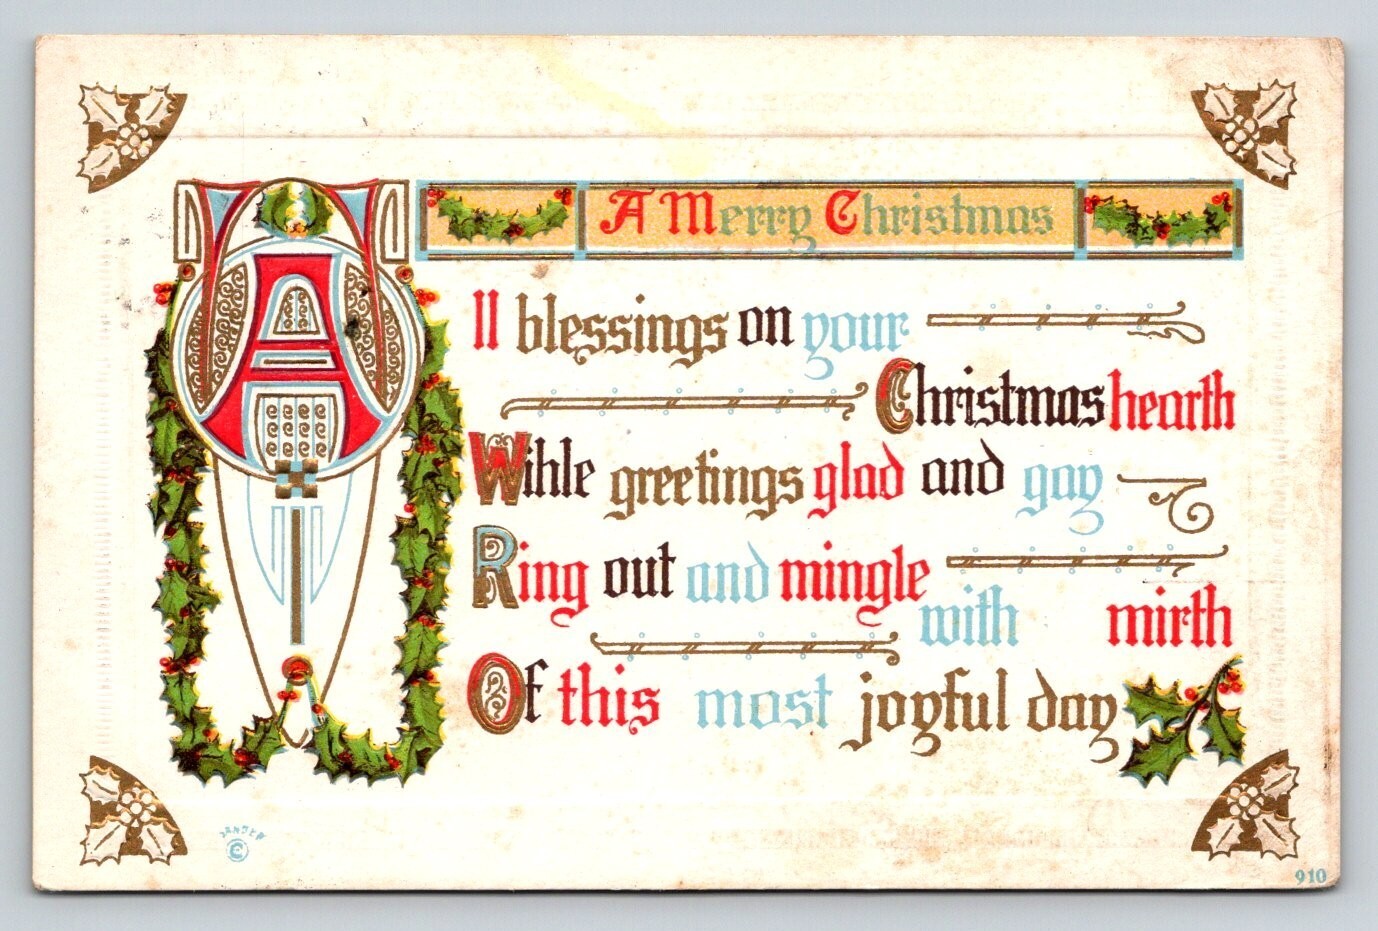 A Merry Christmas
All blessings on your
Christmas hearth
Wihle greetings glad and gay
Ring out and mingle
with mirth
Of this most joyful day
JANSEN
©
910